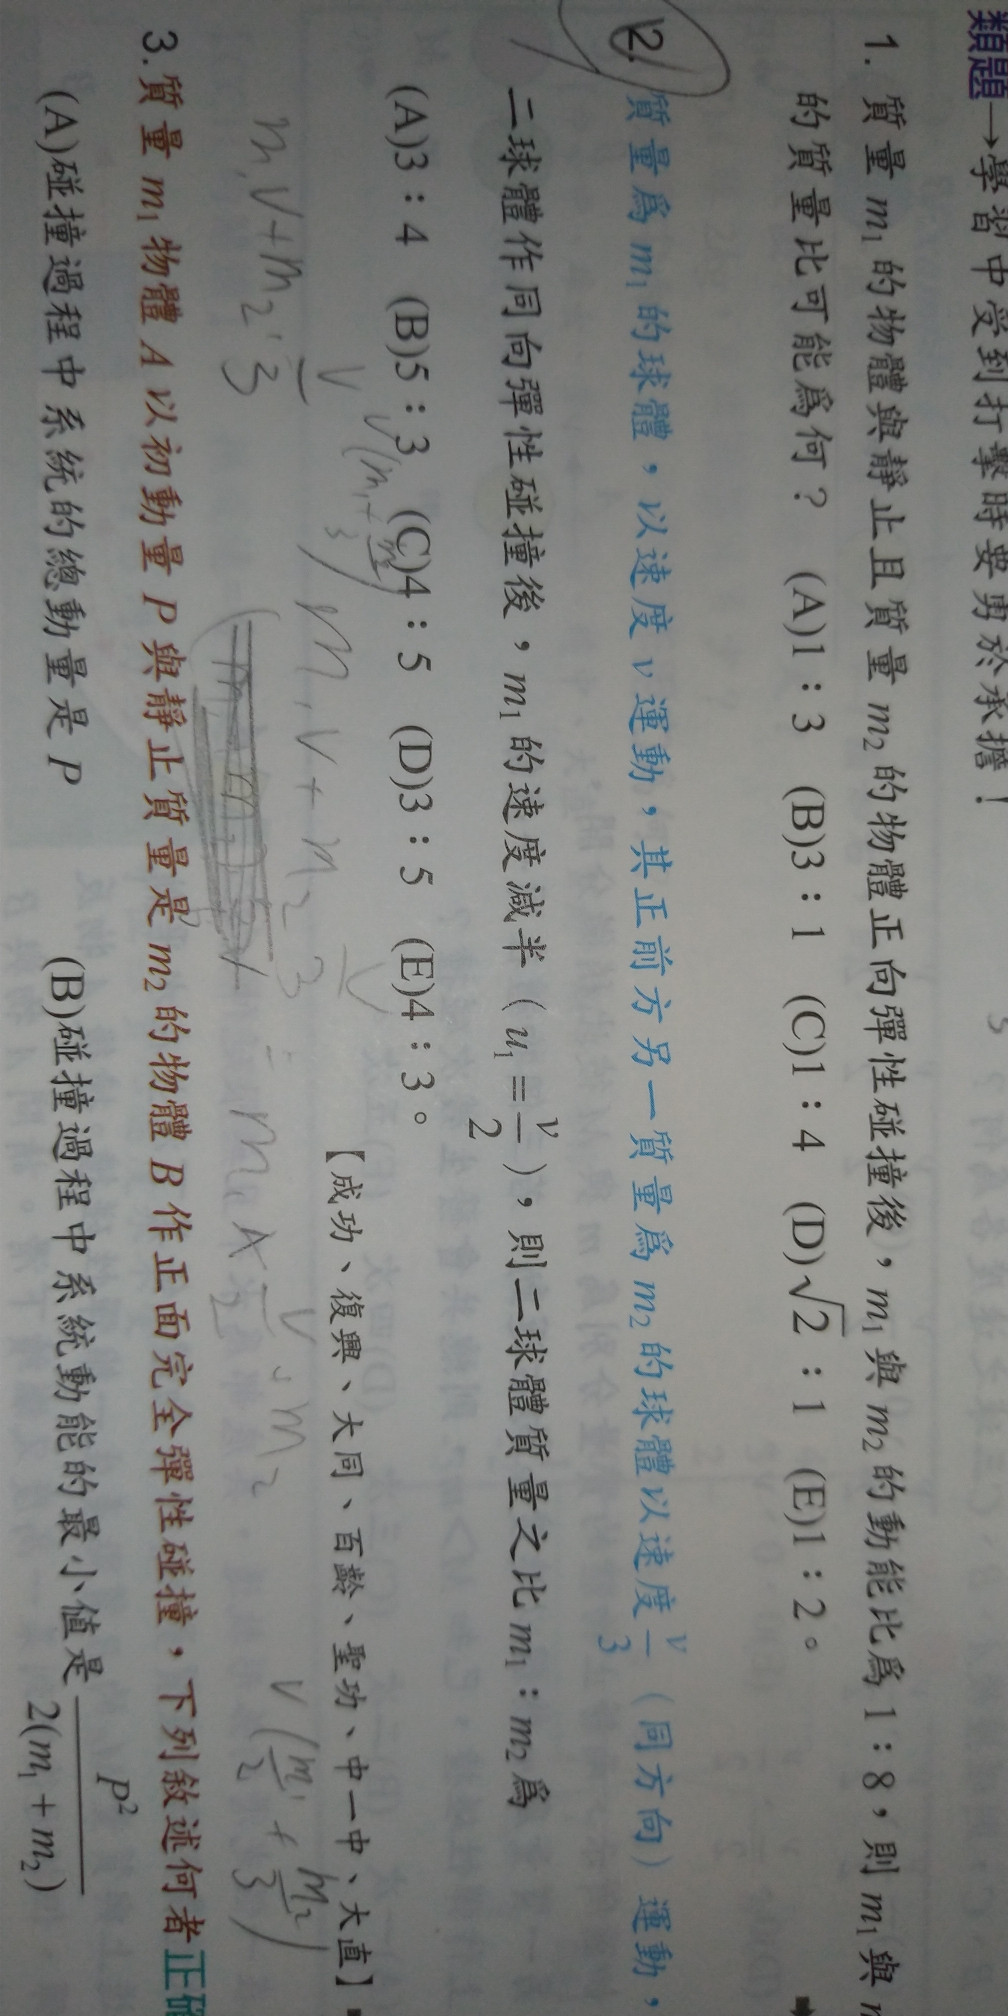 類題→學習中受到打擊時要勇於承擔！
1. 質量 m₁ 的物體與靜止且質量 m₂ 的物體正向彈性碰撞後，m₁ 與 m₂ 的動能比為 1：8，則 m₁ 與
的質量比可能為何？ (A)1：3 (B)3：1 (C)1：4 (D)√2：1 (E)1：2。
2. 質量為 m₁ 的球體，以速度 v 運動，其正前方另一質量為 m₂ 的球體以速度 v/3（同方向）運動，
二球體作同向彈性碰撞後，m₁ 的速度減半（u₁ = v/2），則二球體質量之比 m₁：m₂ 為
(A)3：4 (B)5：3 (C)4：5 (D)3：5 (E)4：3。
【成功、復興、大同、百齡、聖功、中一中、大直】
v(m₁+m₂/3)
m₁v+m₂·v/3
m₁v+m₂ v/3
v(m₁/2+m₂/3)
3. 質量 m₁ 物體 A 以初動量 P 與靜止質量是 m₂ 的物體 B 作正面完全彈性碰撞，下列敘述何者正確
(A)碰撞過程中系統的總動量是 P (B)碰撞過程中系統動能的最小值是 P²/2(m₁+m₂)